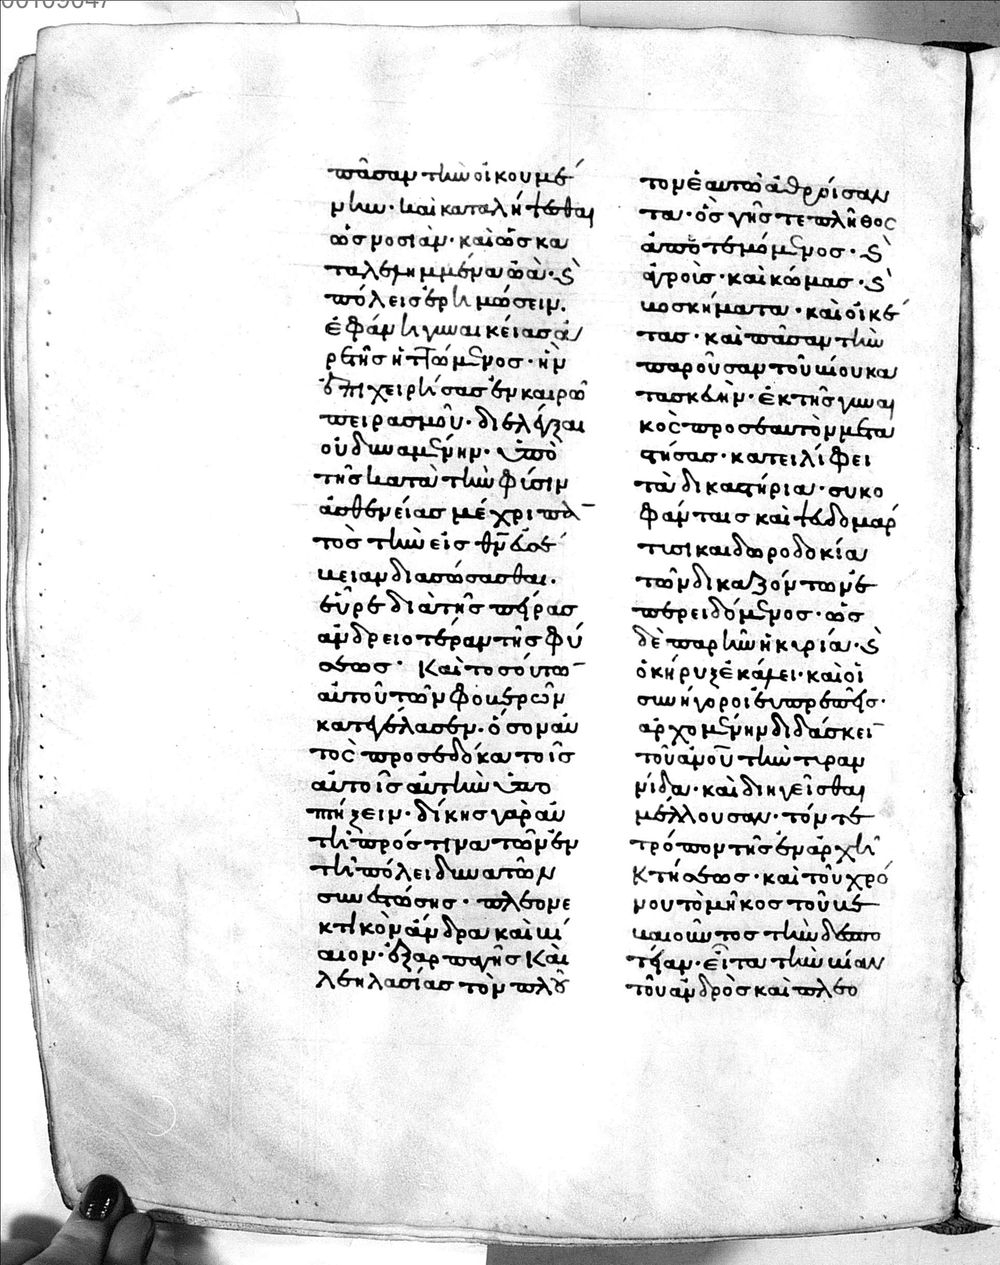 πᾶσαν τὴν οἰκουμέ
νην· καὶ καταλήψεσθαι
ὡς νοσιὰν· καὶ ὡς κα
ταλελημμένα ὠὰ· καὶ
πόλεις ἐρημώσειν.
ἐφάνη γυναικείας ἀ
ρετῆς ἡττώμενος· ἣν
ἐπιχειρήσας ἐν καιρῶ
πειρασμοῦ· διελέγξαι
οὐ δυναμένην· ὑπὸ
τῆς κατὰ τὴν φύσιν
ἀσθενείας μέχρι παν
τὸς τὴν εἰς θν εὐσέ
βειαν διασώσασθαι.
εὗρε διὰ τῆς πείρας
ἀνδρειοτέραν τῆς φύ
σεως· Καὶ τοσούτω
αὐτοῦ τῶν φοβερῶν
κατεγέλασεν. ὅσον αὐ
τὸς προσεδόκα τοῖς
αὐτοῖς αὐτὴν ὑπο
πήξειν. δίκης γὰρ αὐ
τῆ πρός τινα τῶν ἐν
τῆ πόλει δυνατῶν
συνεστώσης· πλεονε
κτικὸν ἄνδρα καὶ βί
αιον· ἐξ ἁρπαγῆς καὶ
λεηλασίας τὸν πλοῦ
τον ἑαυτῶ ἀθροίσαν
τα· ὃς γῆς τε πλῆθος
ἀποτεμόμενος· καὶ
ἀγροὺς· καὶ κώμας· καὶ
βοσκήματα· καὶ οἰκέ
τας· καὶ πᾶσαν τὴν
παροῦσαν τοῦ βίου κα
τασκευὴν· ἐκ τῆς γυναι
κὸς πρὸς ἑαυτὸν μετα
στήσας· κατειλήφει
τὰ δικαστήρια· συκο
φάνταις καὶ ψευδομάρ
τυσι καὶ δωροδοκία
τῶν δικαζόντων ἐ
περειδόμενος· ὡς
δὲ παρῆν ἡ κυρία· καὶ
ὁ κήρυξ ἐκάλει· καὶ οἱ
συνήγοροι εὐτρεπεῖς·
ἀρχομένην διδάσκειν
τοῦ ἀνοῦ τὴν τυραν
νίδα· καὶ διηγεῖσθαι
μέλλουσαν· τόν τε
τρόπον τῆς ἐν ἀρχῆ
κτήσεως· καὶ τοῦ χρό
νου τὸ μῆκος τοῦ βε
βαιοῦντος τὴν δεσπο
τείαν· εἶτα τὴν βίαν
τοῦ ἀνδρὸς καὶ πλεο